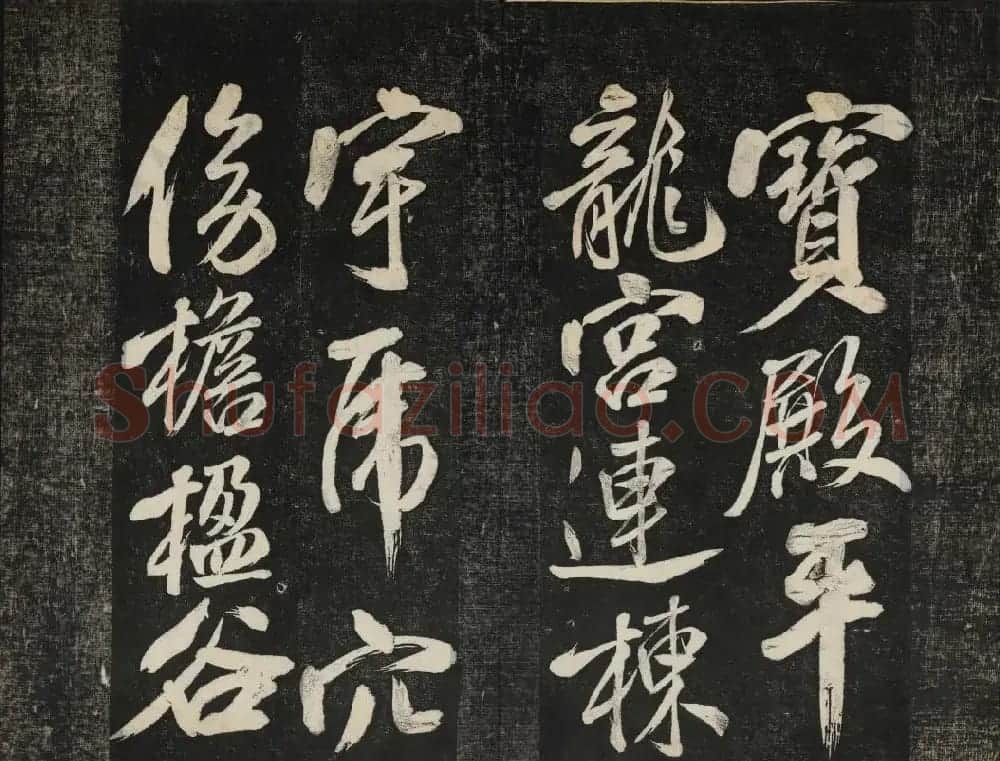 寶殿平
龍宮連棟
宇乕穴
傍檐楹谷
Shufaziliao.COM